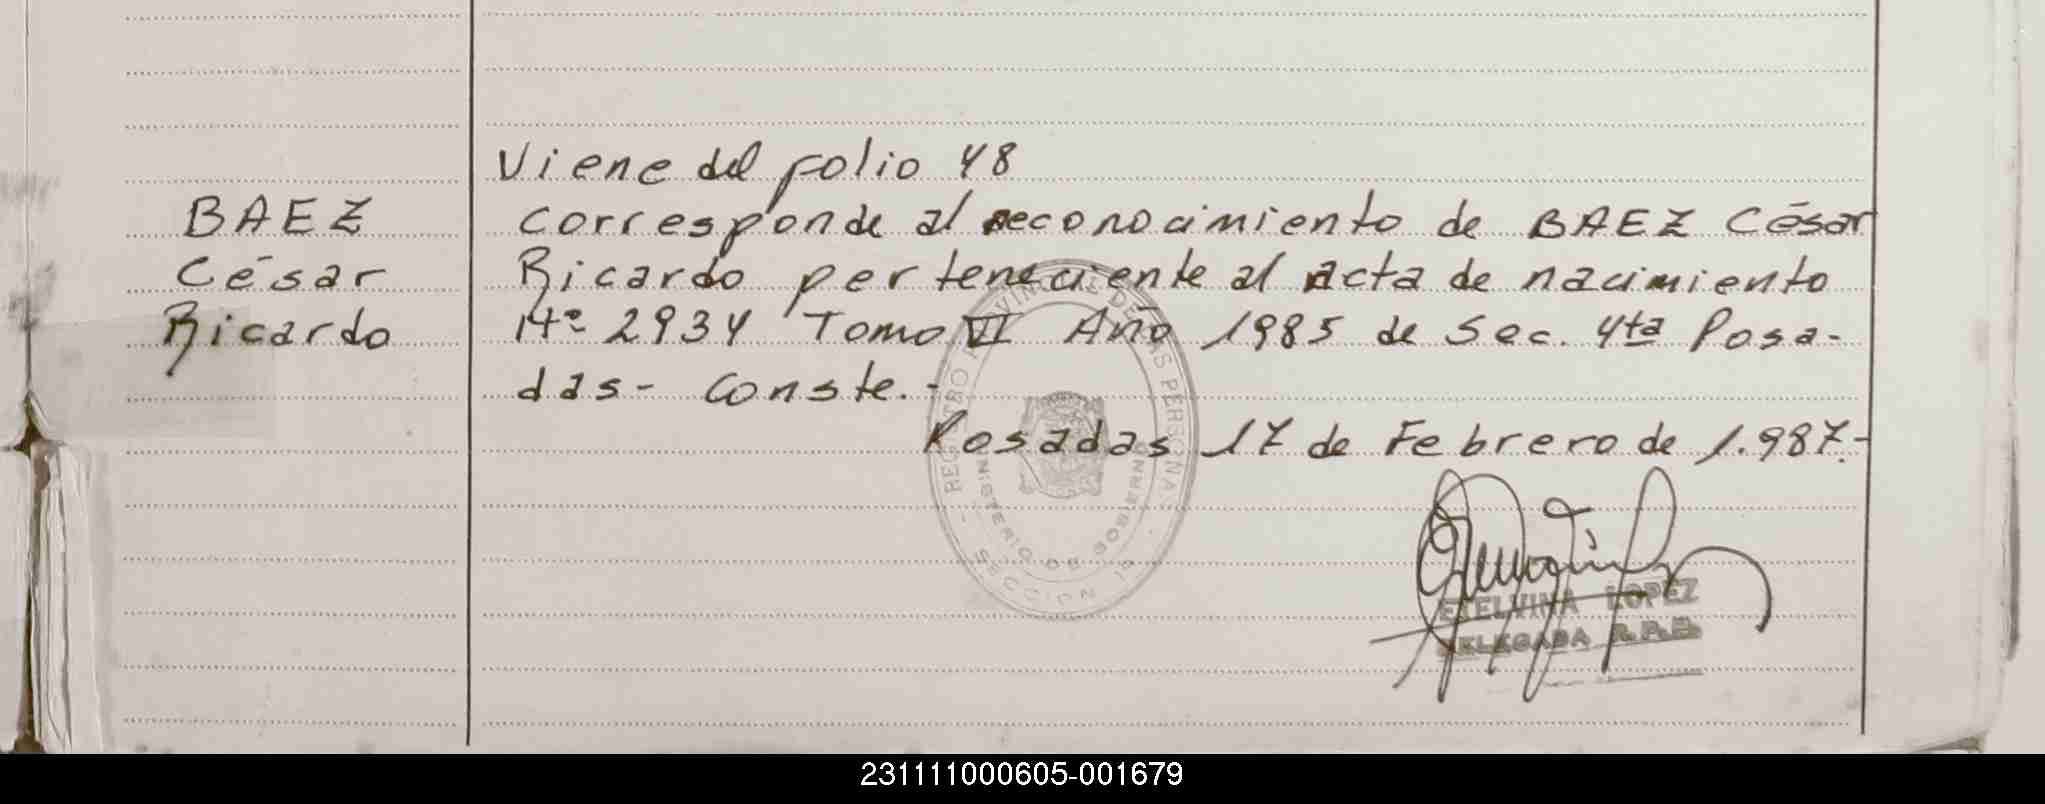 Viene del folio 48
BAEZ
César
Ricardo
corresponde al reconocimiento de BAEZ César
Ricardo perteneciente al acta de nacimiento
Nº 2934 Tomo VII Año 1985 de Sec. 4ta Posa-
das- conste.-
Posadas 17 de Febrero de 1.987.-
REGISTRO PROVINCIAL DE LAS PERSONAS
MINISTERIO DE GOBIERNO
SECCION
ETELVINA LOPEZ
DELEGADA R.P.P.
231111000605-001679